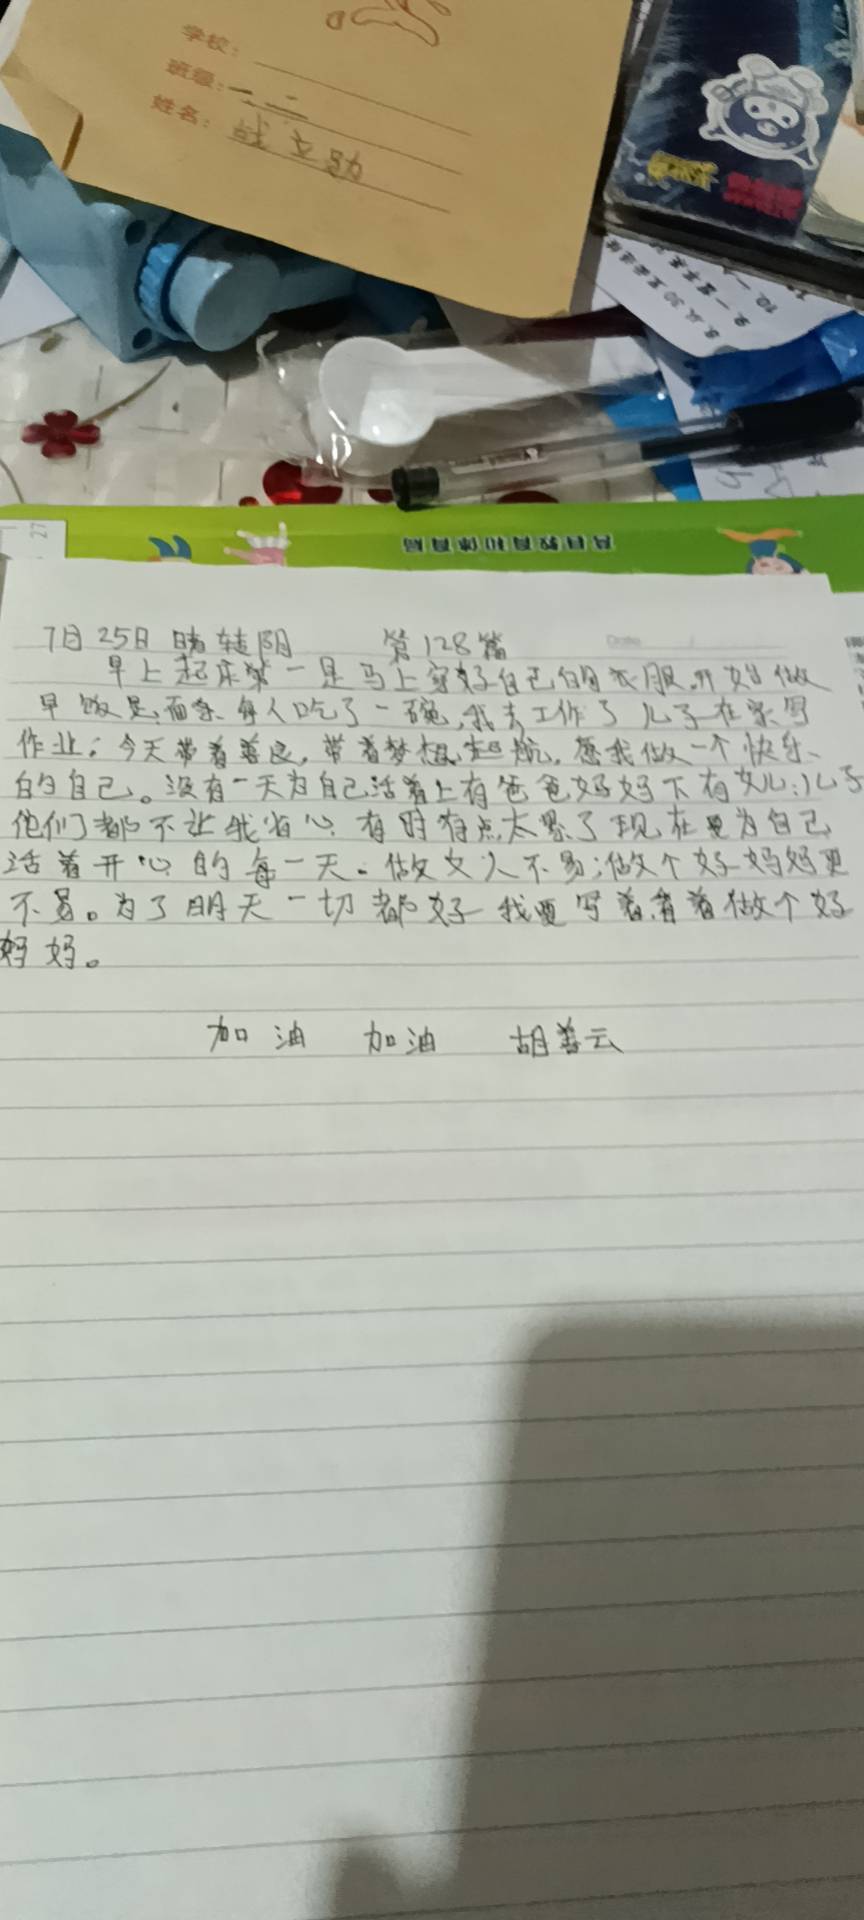 学校:
班级: 一 二
姓名:
7月25日 晴转阴 第128篇
早上起床第一是马上穿好自己的衣服.开始做
早饭是,面条.每人吃了一碗,我去工作了儿子在家写
作业;今天带着善良,带着梦想,起航,愿我做一个快乐、
的自己。没有一天为自己活着上有爸爸妈妈下有女儿:儿子
他们都不让我省心.有时有点太累了现在要为自己
活着开心的每一天。做女人不易;做个好妈妈更
不易。为了明天一切都好我要写着,看着做个好
妈妈。
加油 加油 胡善云